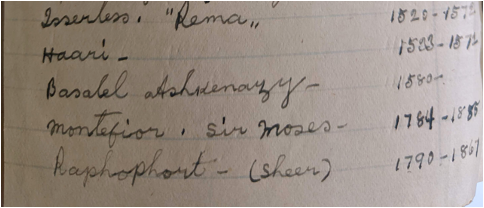 Isserless. "Rema„ 1520-1572
Haari - 1533-1572
Basalel Ashkenazy - 1580-
Montefior. Sir Moses - 1784-1885
Raphophort - (Sheer) 1790-1867